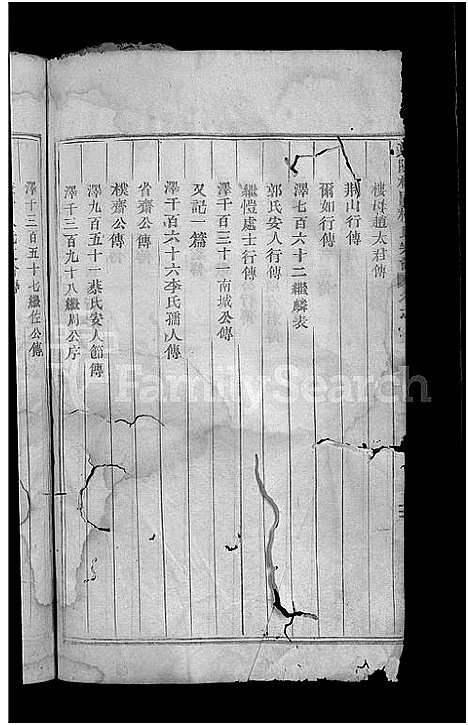 樓母趙太君傳
荆山行傳
爾如行傳
澤七百六十二繼麟表
郭氏安人行傳
繼愷處士行傳
澤千百三十一南城公傳
又記一篇
澤千百六十六李氏孺人傳
省齋公傳
樸齋公傳
澤九百五十一蔡氏安人節傳
澤千三百九十八繼周公序
澤十三百四十七繼佐公傳
FamilySearch